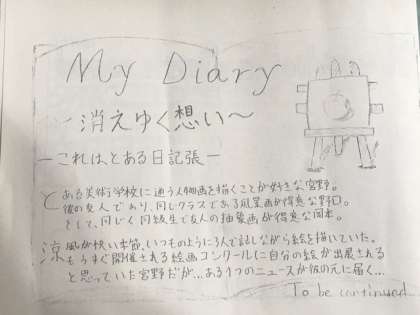 My Diary
〜消えゆく想い〜
ーこれは、とある日記張ー
とある美術学校に通う人物画を描くことが好きな宮野。
彼の友人であり、同じクラスである風景画が得意な野口。
そして、同じく同級生で友人の抽象画が得意な岡本。
涼風が快い季節、いつものように3人で話しながら絵を描いていた。
もうすぐ開催される絵画コンクールに自分の絵が出展される
と思っていた宮野だが…ある1つのニュースが彼の元に届く…
To be continued